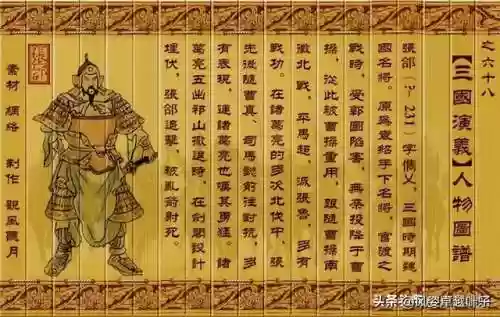 之六十八
【三國演義】人物圖譜
張郃(?~231)字儁乂,三國時期魏
國名將。原爲袁紹手下名將,官渡之
戰時,受郭圖陷害,無奈投降于曹
操,從此被曹操重用,跟隨曹操
徵北戰,平馬超,滅張魯,多有
戰功。在諸葛亮的多次北伐中,張
先後隨曹真、司馬懿前往對抗,多
有表現,連諸葛亮也嘆其勇猛。諸
葛亮五出祁山撤退時,在劍閣設計
埋伏,張郃追擊,被亂箭射死。
張郃
素材 網絡 制作 觀風聽月
头条